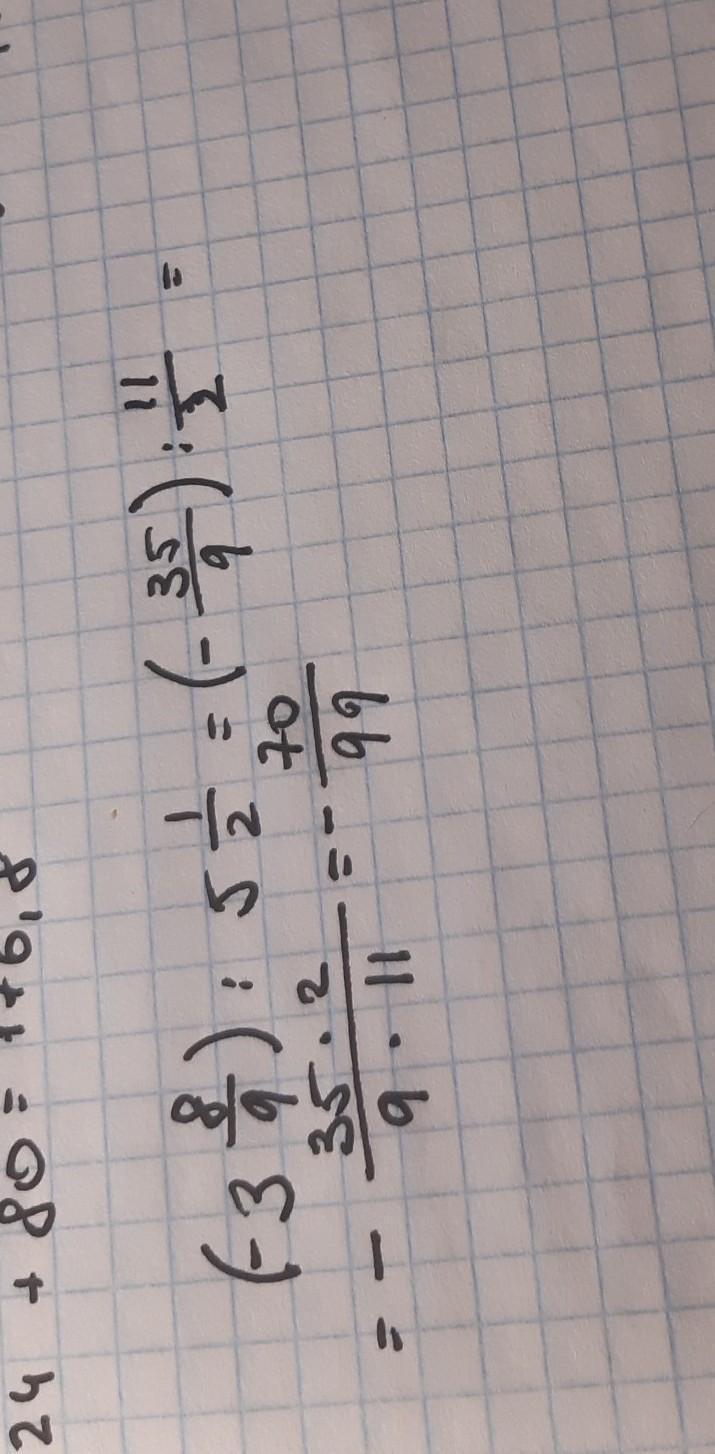 24 + 80 =
(-3 8/9) : 5 1/2 = (- 35/9) : 11/2 =
= - 35 · 2 / 9 · 11 = - 70/99